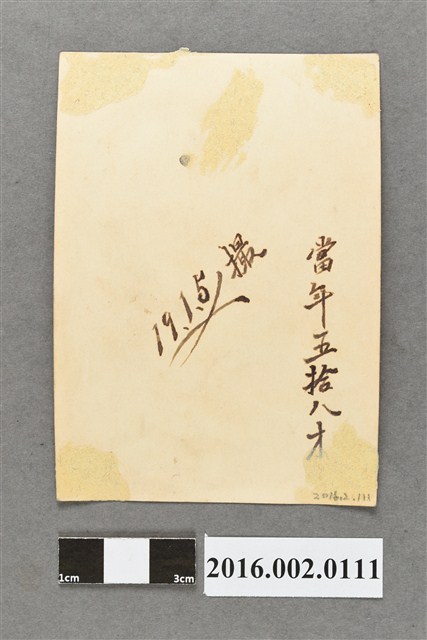 當年五拾八才
19.1.5 撮
2016.2.111
1cm 3cm
2016.002.0111